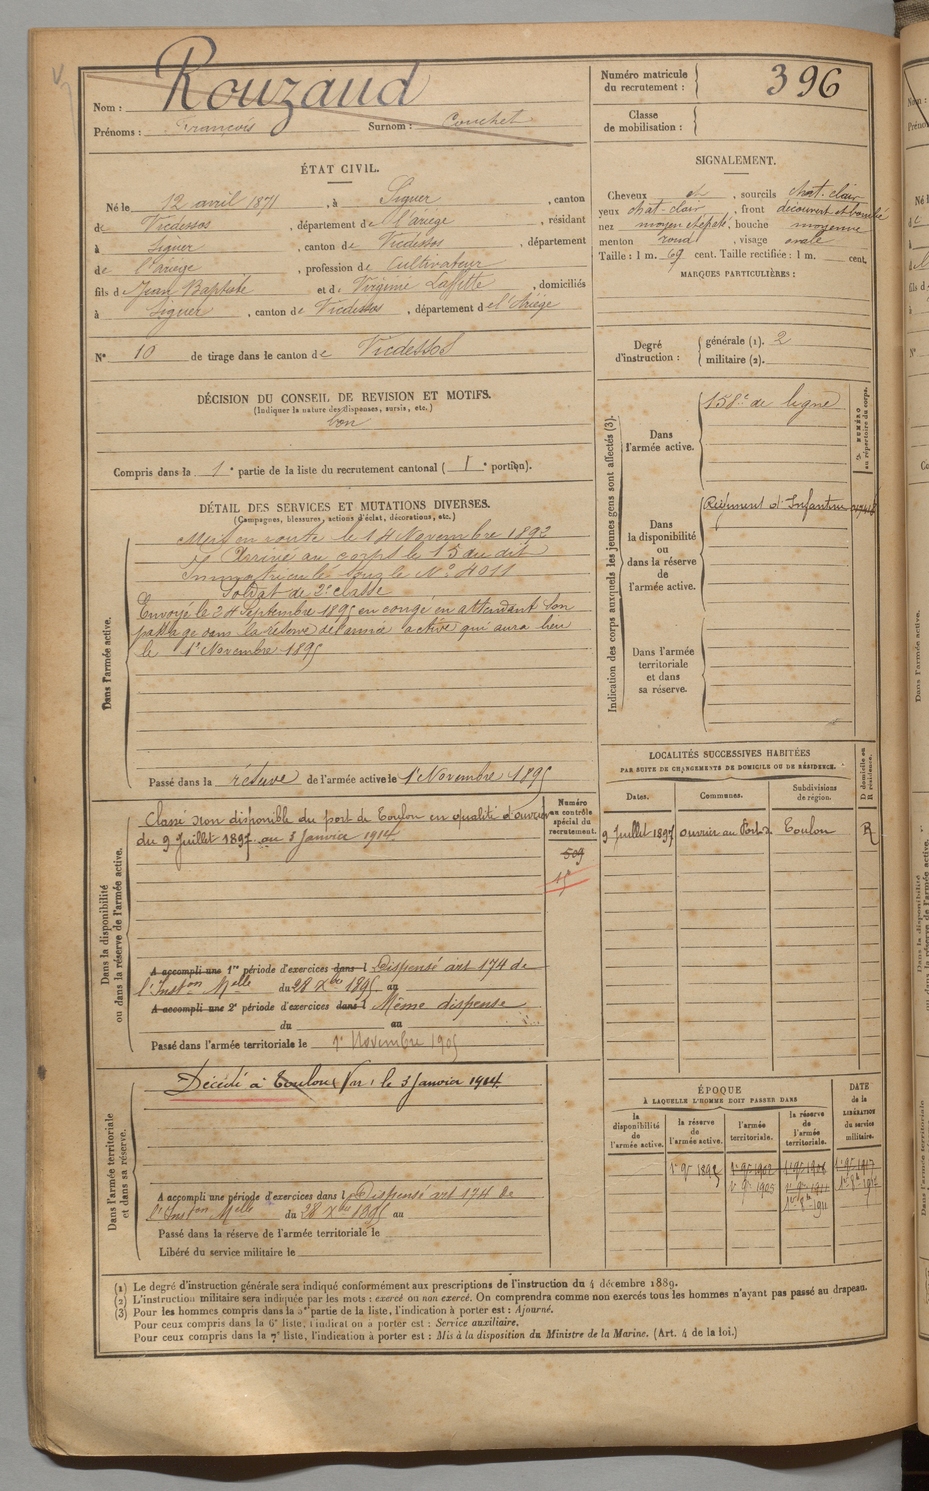 Nom : Rouzaud
Prénoms : François Surnom : Couchet
Numéro matricule du recrutement : 396
Classe de mobilisation :
ÉTAT CIVIL.
Né le 12 avril 1871, à Siguer, canton
de Vicdessos, département de l'ariège, résidant
à Siguer, canton de Vicdessos, département
de l'ariège, profession de Cultivateur
fils de Jean Baptiste et de Virginie Laffitte, domiciliés
à Siguer, canton de Vicdessos, département de l'Ariège
N° 10 de tirage dans le canton de Vicdessos
SIGNALEMENT.
Cheveux et, sourcils chat. clair
yeux chat. clair, front découvert et bombé
nez moyen et épaté, bouche moyenne
menton rond, visage ovale
Taille : 1 m. 69 cent. Taille rectifiée : 1 m. cent.
MARQUES PARTICULIÈRES :
Degré d'instruction : générale (1). 2
militaire (2).
DÉCISION DU CONSEIL DE REVISION ET MOTIFS.
(Indiquer la nature des dispenses, sursis, etc.)
bon
Compris dans la 1e partie de la liste du recrutement cantonal ( Ie portion).
DÉTAIL DES SERVICES ET MUTATIONS DIVERSES.
(Campagnes, blessures, actions d'éclat, décorations, etc.)
Dans l'armée active.
Mis en route le 14 Novembre 1892
Arrivé au corps le 15 du dit
Immatriculé sous le N° 4011
Soldat de 2e classe
Envoyé le 24 Septembre 1895 en congé en attendant son
passage dans la réserve de l'armée active qui aura lieu
le 1er Novembre 1895
Passé dans la réserve de l'armée active le 1er Novembre 1895
Indication des corps auxquels les jeunes gens sont affectés (3).
NUMÉRO au répertoire du corps.
Dans l'armée active.
158e de ligne
Dans la disponibilité ou dans la réserve de l'armée active.
Régiment d'Infanterie
Dans l'armée territoriale et dans sa réserve.
Dans la disponibilité ou dans la réserve de l'armée active.
Numéro au contrôle spécial du recrutement.
Classé non disponible du port de Toulon en qualité d'ouvrier
du 9 Juillet 1897 au 3 Janvier 1914
509
A accompli une 1re période d'exercices dans l Dispensé art 174 de
l'Inston Melle du 28 Xbre 1895 au
A accompli une 2e période d'exercices dans l Même dispense
du au
Passé dans l'armée territoriale le 1er Novembre 1905
LOCALITÉS SUCCESSIVES HABITÉES
PAR SUITE DE CHANGEMENTS DE DOMICILE OU DE RÉSIDENCE.
Dates. Communes. Subdivisions de région. D domicile ou R résidence.
9 Juillet 1897 ouvrier au Port de Toulon R
Dans l'armée territoriale et dans sa réserve.
Décédé à Toulon (Var) le 3 Janvier 1914
A accompli une période d'exercices dans l Dispensé art 174 de
l'Inston Melle du 28 Xbre 1895 au
Passé dans la réserve de l'armée territoriale le
Libéré du service militaire le
ÉPOQUE
À LAQUELLE L'HOMME DOIT PASSER DANS
la disponibilité de l'armée active. la réserve de l'armée active. l'armée territoriale. la réserve de l'armée territoriale. DATE de la LIBÉRATION du service militaire.
1er 9bre 1895 1er 9bre 1902 1er 9bre 1908 1er 9bre 1917
1er 9bre 1905 1er 9bre 1911
1911
(1) Le degré d'instruction générale sera indiqué conformément aux prescriptions de l'instruction du 4 décembre 1889.
(2) L'instruction militaire sera indiquée par les mots : exercé ou non exercé. On comprendra comme non exercés tous les hommes n'ayant pas passé au drapeau.
(3) Pour les hommes compris dans la 2e partie de la liste, l'indication à porter est : Ajourné.
Pour ceux compris dans la 6e liste, l'indication à porter est : Service auxiliaire.
Pour ceux compris dans la 7e liste, l'indication à porter est : Mis à la disposition du Ministre de la Marine. (Art. 4 de la loi.)